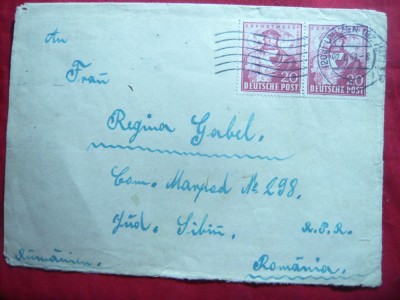 EXPORTMESSE EXPORTMESSE
20 20
DEUTSCHE POST DEUTSCHE POST
An
Frau
Regina Gabel.
Com. Marpod № 298.
Jud. Sibiu. R.P.R.
Rumänien. România.